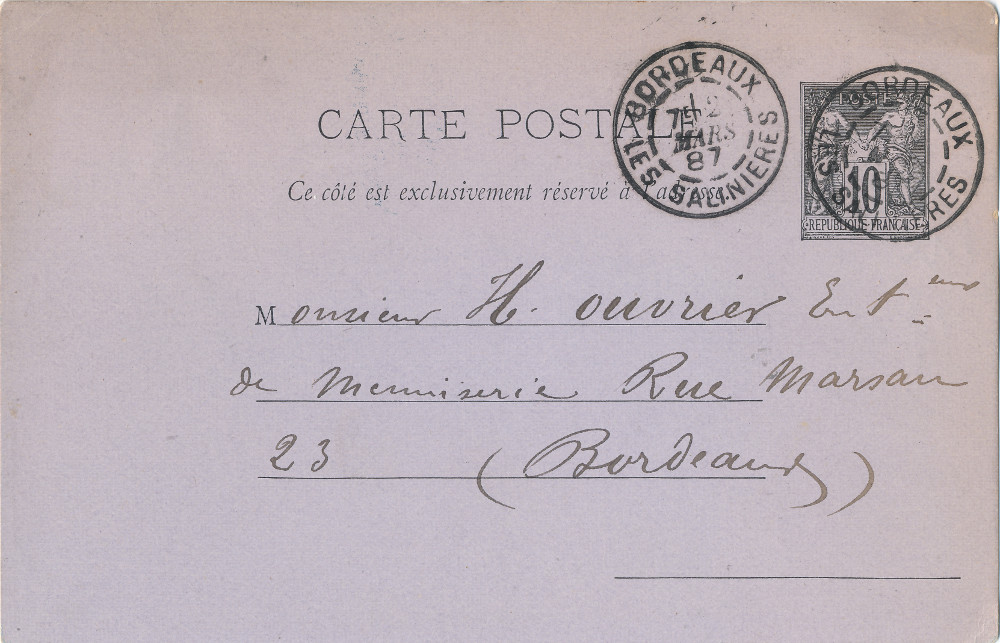 CARTE POSTALE
BORDEAUX
7E
12
MARS
87
LES SALINIERES
BORDEAUX
LES SALINIERES
POSTES
10
REPUBLIQUE FRANÇAISE
Ce côté est exclusivement réservé à l'adresse.
Monsieur H. Ouvrier Enteur
de Menuiserie Rue Marsan
23 (Bordeaux)